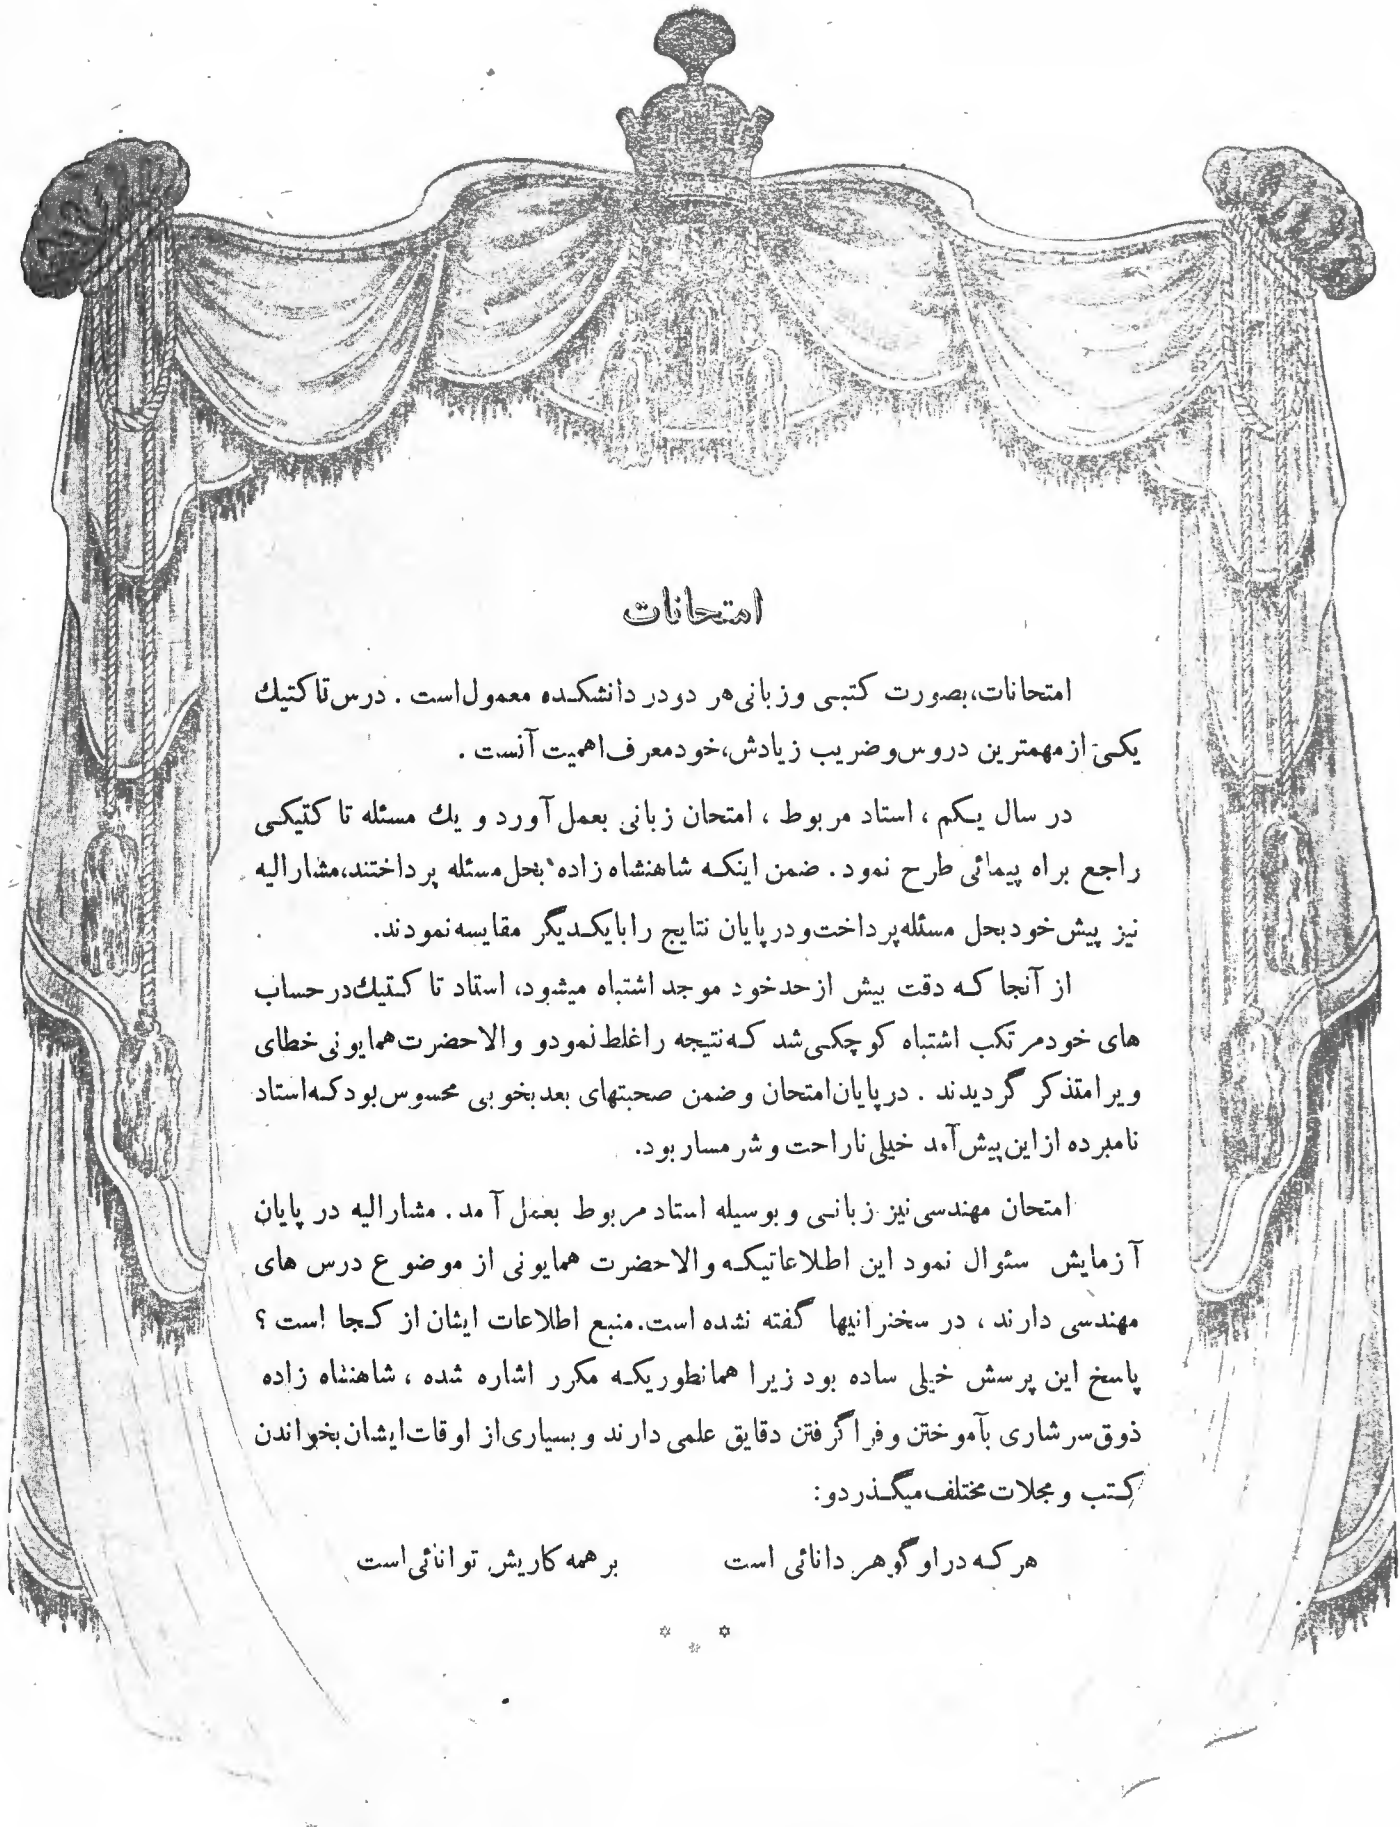 امتحانات
امتحانات، بصورت کتبی و زبانی هر دو در دانشکده معمول است . درس تاکتیك
یکی از مهمترین دروس و ضریب زیادش، خود معرف اهمیت آنست .
در سال یکم ، استاد مربوط ، امتحان زبانی بعمل آورد و یك مسئله تاکتیکی
راجع براه پیمائی طرح نمود . ضمن اینکه شاهنشاه زاده بحل مسئله پرداختند، مشارالیه
نیز پیش خود بحل مسئله پرداخت و در پایان نتایج را بایکدیگر مقایسه نمودند.
از آنجا که دقت بیش از حد خود موجد اشتباه میشود، استاد تاکتیك در حساب
های خود مرتکب اشتباه کوچکی شد که نتیجه را غلط نمود و والاحضرت همایونی خطای
ویرا متذکر گردیدند . در پایان امتحان و ضمن صحبتهای بعد بخوبی محسوس بود که استاد
نامبرده از این پیش آمد خیلی ناراحت و شرمسار بود.
امتحان مهندسی نیز زبانی و بوسیله استاد مربوط بعمل آمد . مشارالیه در پایان
آزمایش سئوال نمود این اطلاعاتیکه والاحضرت همایونی از موضوع درس های
مهندسی دارند ، در سخنرانیها گفته نشده است. منبع اطلاعات ایشان از کجا است ؟
پاسخ این پرسش خیلی ساده بود زیرا همانطوریکه مکرر اشاره شده ، شاهنشاه زاده
ذوق سرشاری بآموختن و فرا گرفتن دقایق علمی دارند و بسیاری از اوقات ایشان بخواندن
کتب و مجلات مختلف میگذرد و:
هر که در او گوهر دانائی است بر همه کاریش توانائی است